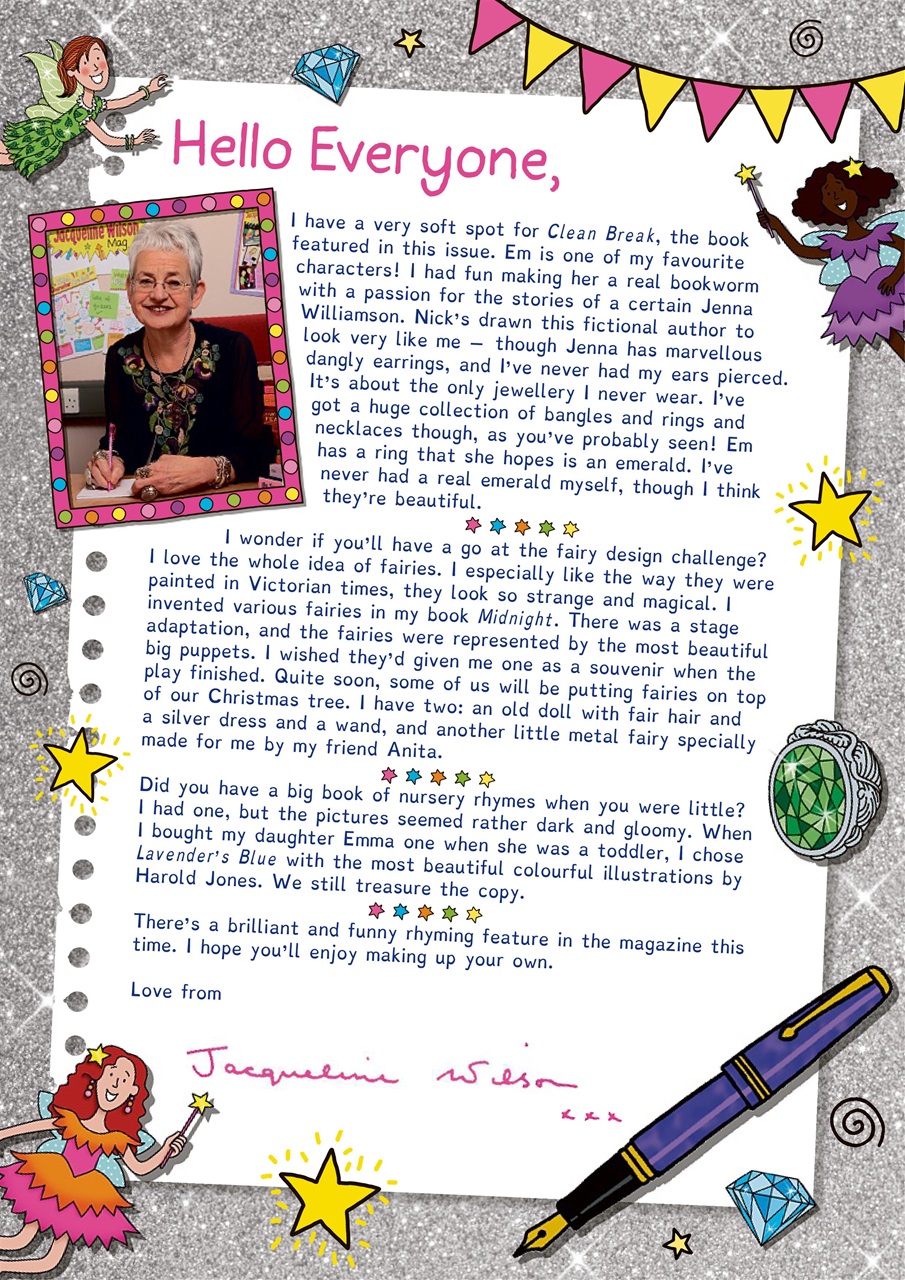 Hello Everyone,
Jacqueline Wilson
Mag
I have a very soft spot for Clean Break, the book
featured in this issue. Em is one of my favourite
characters! I had fun making her a real bookworm
with a passion for the stories of a certain Jenna
Williamson. Nick's drawn this fictional author to
look very like me – though Jenna has marvellous
dangly earrings, and I've never had my ears pierced.
It's about the only jewellery I never wear. I've
got a huge collection of bangles and rings and
necklaces though, as you've probably seen! Em
has a ring that she hopes is an emerald. I've
never had a real emerald myself, though I think
they're beautiful.
I wonder if you'll have a go at the fairy design challenge?
I love the whole idea of fairies. I especially like the way they were
painted in Victorian times, they look so strange and magical. I
invented various fairies in my book Midnight. There was a stage
adaptation, and the fairies were represented by the most beautiful
big puppets. I wished they'd given me one as a souvenir when the
play finished. Quite soon, some of us will be putting fairies on top
of our Christmas tree. I have two: an old doll with fair hair and
a silver dress and a wand, and another little metal fairy specially
made for me by my friend Anita.
Did you have a big book of nursery rhymes when you were little?
I had one, but the pictures seemed rather dark and gloomy. When
I bought my daughter Emma one when she was a toddler, I chose
Lavender's Blue with the most beautiful colourful illustrations by
Harold Jones. We still treasure the copy.
There's a brilliant and funny rhyming feature in the magazine this
time. I hope you'll enjoy making up your own.
Love from
Jacqueline Wilson
x x x